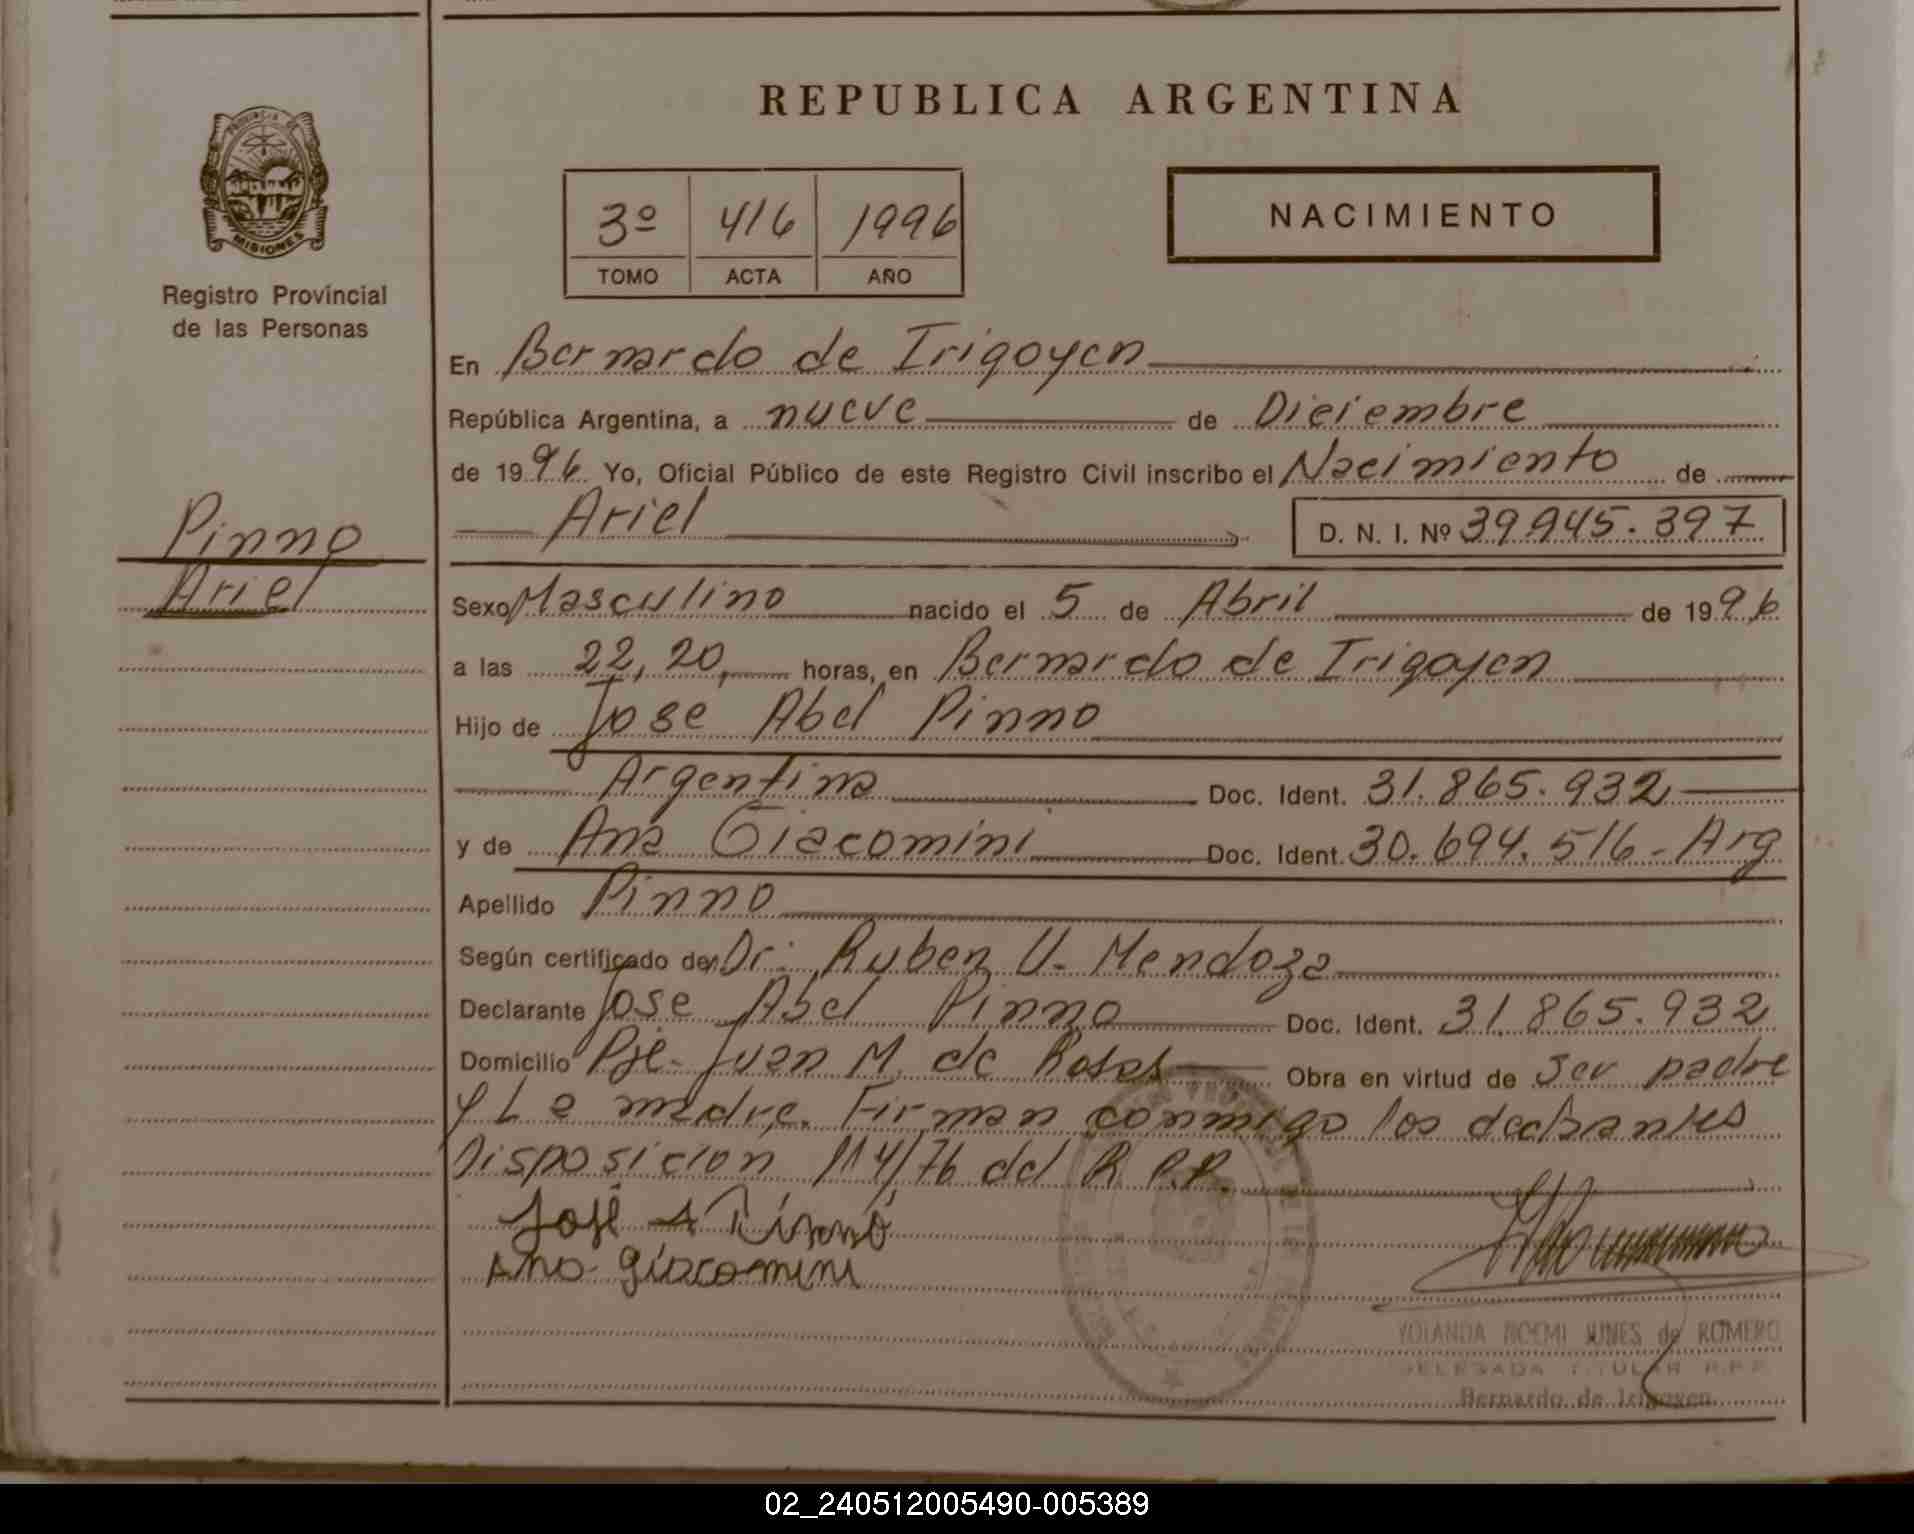 REPUBLICA ARGENTINA
PROVINCIA DE
MISIONES
Registro Provincial
de las Personas
3º 416 1996
TOMO ACTA AÑO
NACIMIENTO
En Bernardo de Irigoyen
República Argentina, a nueve de Diciembre
de 1996 Yo, Oficial Público de este Registro Civil inscribo el Nacimiento de
Ariel D. N. I. Nº 39.945.397
Pinno
Ariel
Sexo Masculino nacido el 5 de Abril de 1996
a las 22,20 horas, en Bernardo de Irigoyen
Hijo de Jose Abel Pinno
Argentina Doc. Ident. 31.865.932
y de Ana Giacomini Doc. Ident. 30.694.516 - Arg
Apellido Pinno
Según certificado de Dr: Ruben U. Mendoza
Declarante Jose Abel Pinno Doc. Ident. 31.865.932
Domicilio Pje. Juan M. de Rosas Obra en virtud de ser padre
y La madre. Firman conmigo los declarantes
Disposicion 114/76 del R.P.P.
José A Pinno
Ana Giacomini
YOLANDA NOEMI JUNES de ROMERO
DELEGADA TITULAR R.P.P.
Bernardo de Irigoyen
02_240512005490-005389